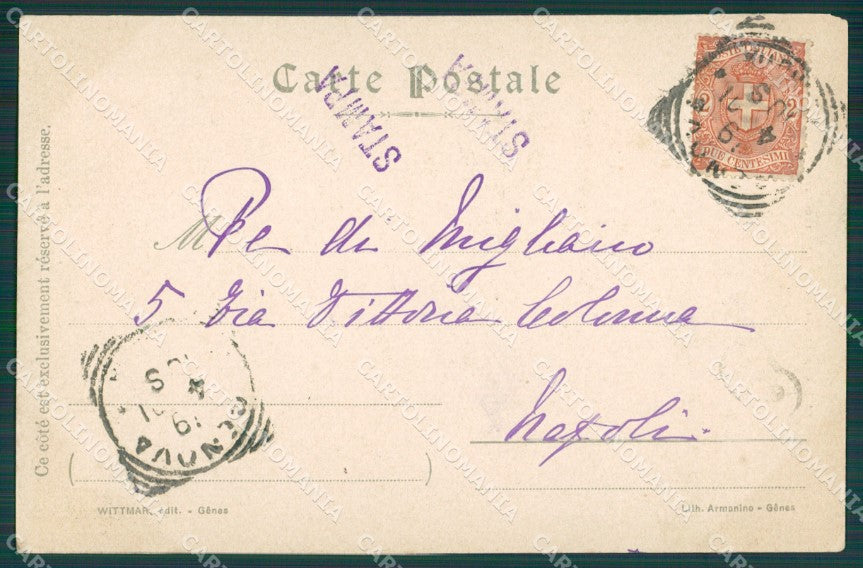 Carte Postale
STAMPA
STAMPA
POSTE ITALIANE
2 2
DUE CENTESIMI
Ce côté est exclusivement réservé à l'adresse.
M
5 Via Vittoria Colonna
Napoli.
GENOVA
WITTMAR, édit. - Gênes
Lith. Armanino - Gênes
CARTOLINOMANIA